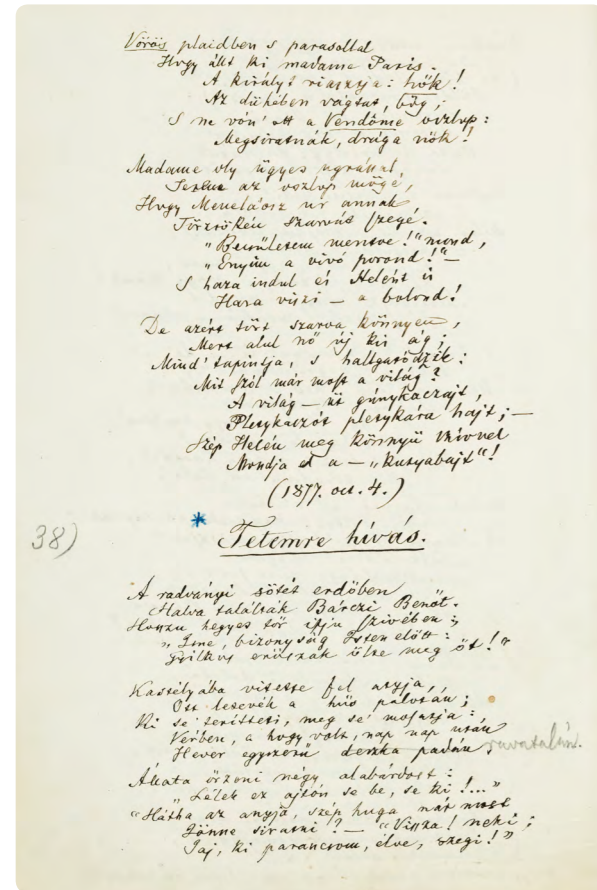 Vörös plaidben s parasollal
Hogy állt ki madame Paris.
A királyt riasztja: hők!
Az dühében vágtat, bőg;
S ne vón' ott a Vendôme oszlop:
Megsiratnák, drága nők!
Madame oly ügyes ugrással
Terűl az oszlop mögé,
Hogy Meneláosz úr annak
Törzsökén szarvas szegé.
„Becsületem mentve!" mond,
„Enyim a vivó porond!" —
S haza indul és Helént is
Haza viszi — a bolond!
De azért tört szarva könnyen,
Mert alul nő új kis ág;
Mind' tapintja, s hallgatódzik:
Mit szól már most a világ?
A világ — üt gúnykaczajt,
Pletykaszót pletykára hajt; —
Szép Helén meg könnyü szivvel
Mondja el a — „kutyabajt"!
(1877. oct. 4.)
* Tetemre hívás.
38)
A radványi sötét erdőben
Halva találták Bárczi Benőt.
Hosszu hegyes tőr ifju szivében;
„Ime, bizonyság Isten előtt:
Gyilkos erőszak ölte meg őt!"
Kastélyába vitette fel atyja,
Ott letevék a hüs palotán;
Ki se teritteti, meg se mosatja:
Vérben, a hogy volt, nap nap után
Hever egyszerü deszka padán, ravatalán.
Állata őrzeni négy alabárdost:
„Lélek ez ajtón se be, se ki!..."
„Hátha az anyja, szép huga már most
Jönne siratni? — „Vissza! neki;
Jaj, ki parancsom, élve, szegi!"